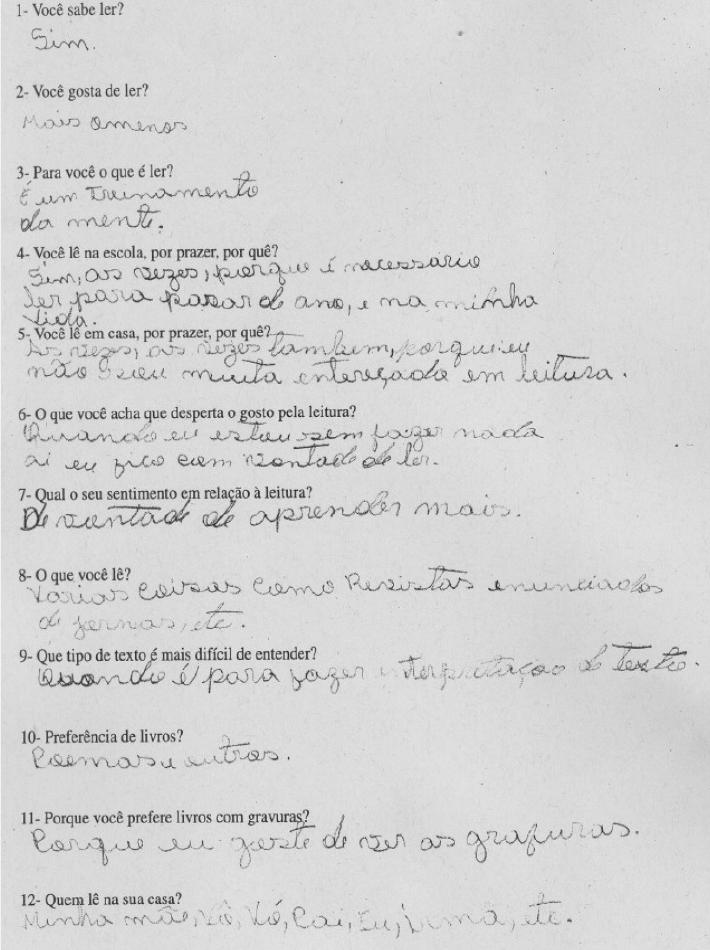 1- Você sabe ler?
Sim.
2- Você gosta de ler?
Mais omenos
3- Para você o que é ler?
É um Treinamento
da mente.
4- Você lê na escola, por prazer, por quê?
Sim, as vezes, porque é necessário
ler para pasar de ano, e na minha
vida.
5- Você lê em casa, por prazer, por quê?
As vezes, as vezes também, porque eu
não sou muita entereçada em leitura.
6- O que você acha que desperta o gosto pela leitura?
Quando eu estou sem fazer nada
ai eu fico com vontade de ler.
7- Qual o seu sentimento em relação à leitura?
De vontade de aprender mais.
8- O que você lê?
Varias coisas como Revistas enunciados
de jornas, etc.
9- Que tipo de texto é mais difícil de entender?
Quando é para fazer interpretaçao de texto.
10- Preferência de livros?
Poemas e outros.
11- Porque você prefere livros com gravuras?
Porque eu goste de ver as grafuras.
12- Quem lê na sua casa?
Minha mãe, Vô, Vó, Pai, Eu, irmã, etc.